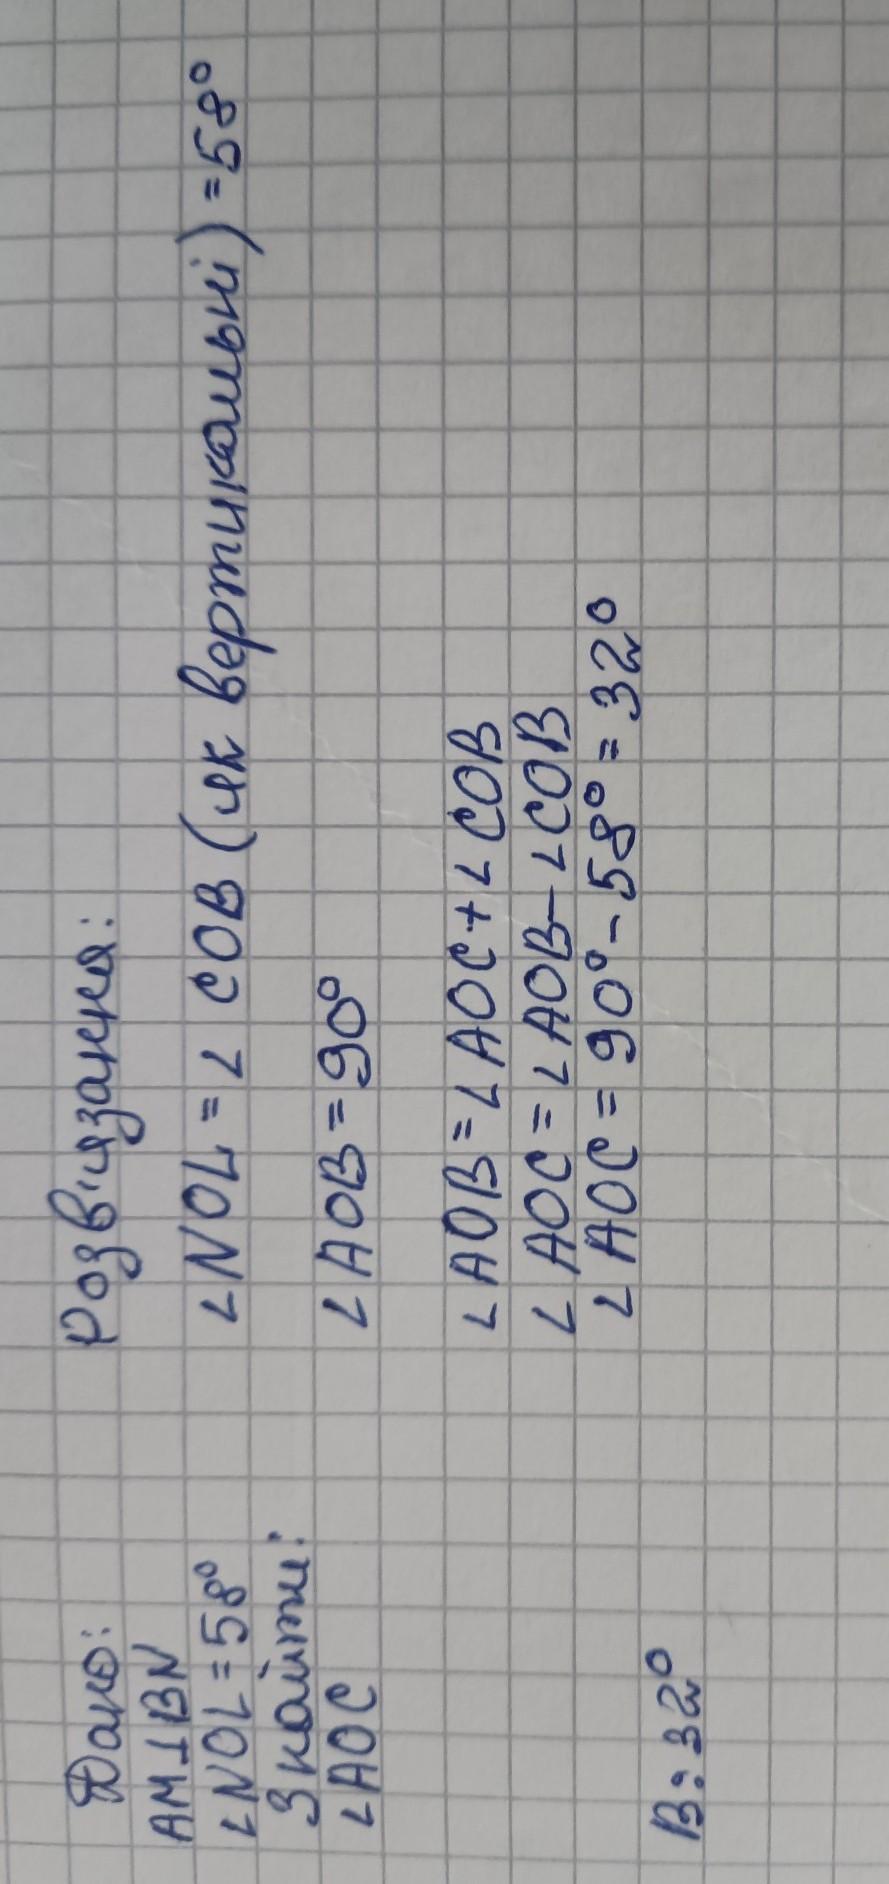 Дано:
AM⊥BN
∠NOL=58°
Знайти:
∠AOC
Розв'язання:
∠NOL=∠COB(як вертикальні)=58°
∠AOB=90°
∠AOB=∠AOC+∠COB
∠AOC=∠AOB-∠COB
∠AOC=90°-58°=32°
В:32°